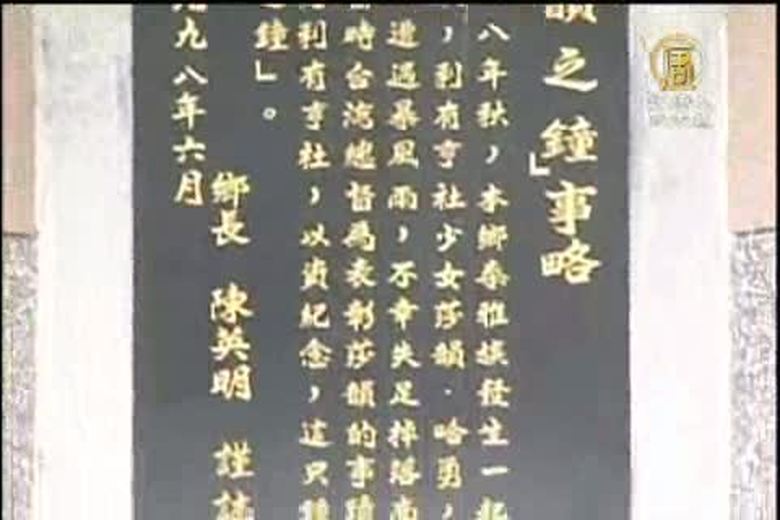 韻之鐘」事略
八年秋，本鄉泰雅族發生一
，利有亨社少女莎韻·哈勇，
遭遇暴風雨，不幸失足掉落南
時台灣總督為表彰莎韻的事蹟
利有亨社，以資紀念，這只鐘
鐘」。
鄉長 陳英明 謹誌
九八年六月